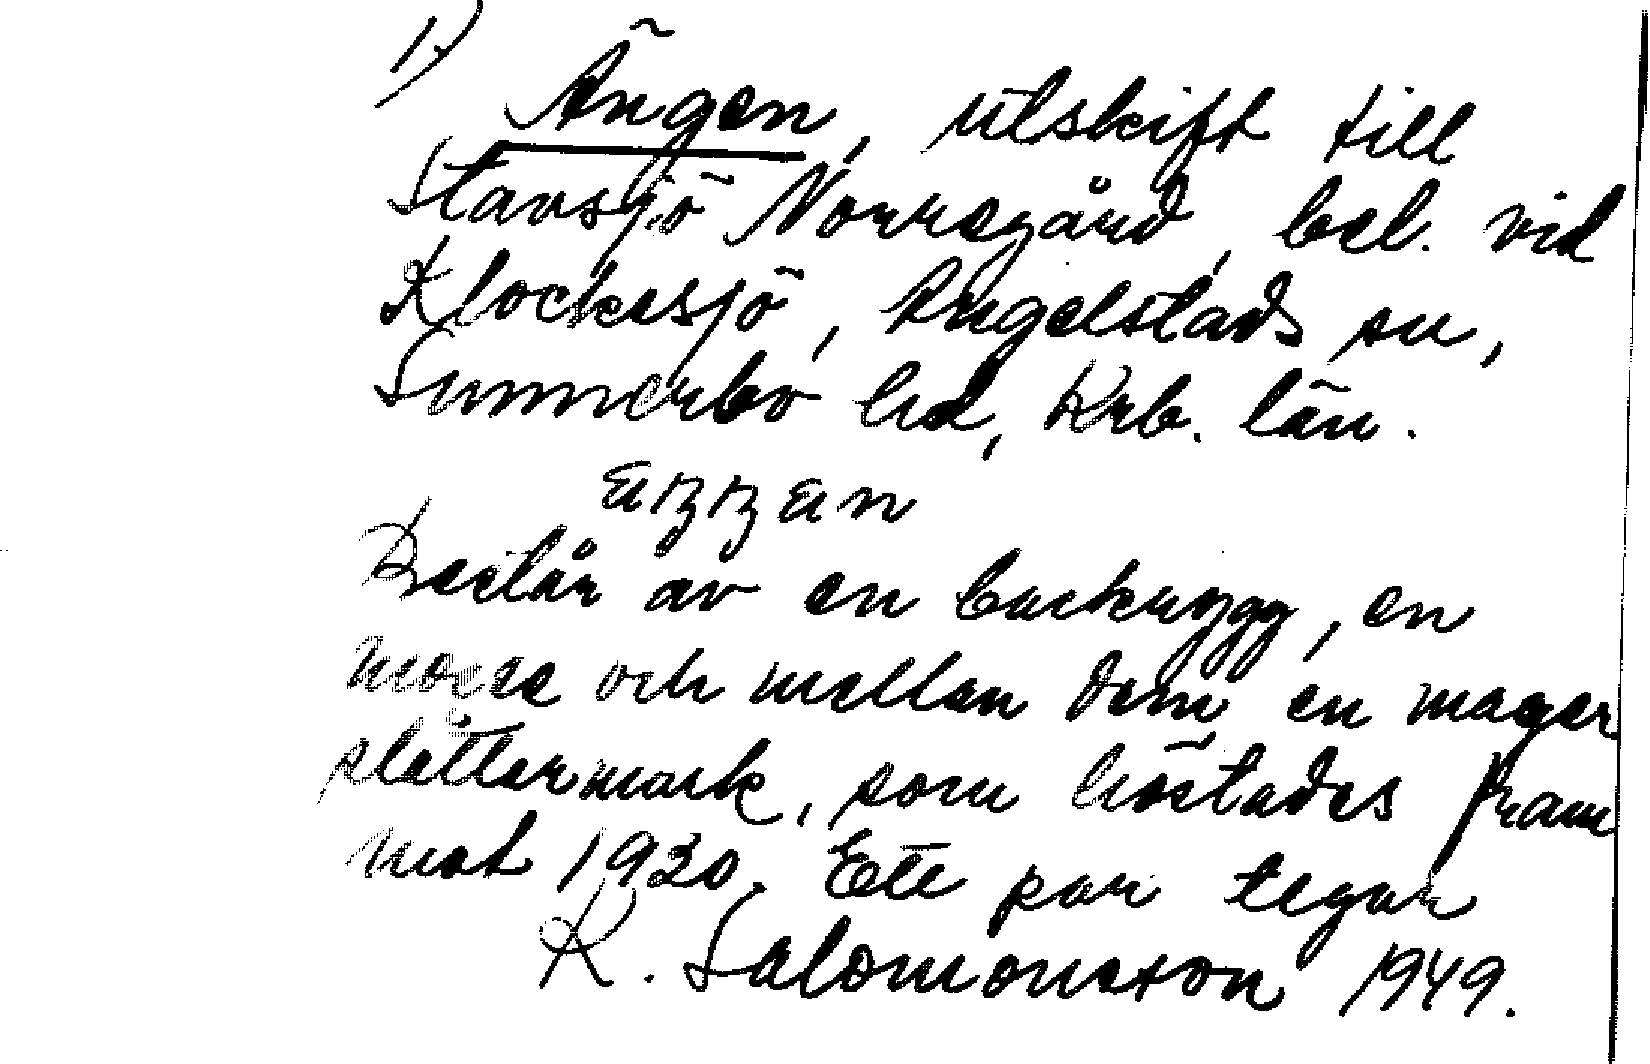 1)
Ängen, utskift till
Stavsjö Norregård, bel. vid
Klockesjö, Angelstads sn,
Sunnerbo hd, Krb. län.
Består av en backrygg, en
mosse och mellan dem en mager
slåttermark, som höstades fram
mot 1930. Ett par tegar
K. Salomonsson 1949.